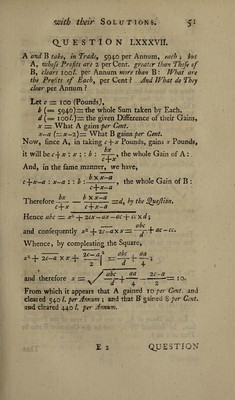 with their SOLUTIONS. 51
QUESTION LXXXVII.
A and B take, in Trade, 5940 per Annum, each; but
A, whose Profits are 2 per Cent. greater than Those of
B, clears 100l. per Annum more than B: What are
the Profits of Each, per Cent? And What do They
clear per Annum?
Let c = 100 (Pounds),
b (= 5940) = the whole Sum taken by Each.
d (= 100l.) = the given Difference of their Gains,
x = What A gains per Cent.
x—a (= x—2) = What B gains per Cent.
Now, since A, in taking c+x Pounds, gains x Pounds,
it will be c+x : x :: b : bx/c+x, the whole Gain of A:
And, in the same manner, we have,
c+x—a : x—a :: b : b×x—a/c+x—a, the whole Gain of B:
Therefore bx/c+x — b×x—a/c+x—a = d, by the Question.
Hence abc = x² + 2cx—ax—ac+cc×d;
and consequently x² + 2c—a×x = abc/d + ac—cc.
Whence, by compleating the Square,
x² + 2c—a × x + 2c—a/2|² = abc/d + aa/4;
and therefore x = √abc/d + aa/4 — 2c—a/2 = 10.
From which it appears that A gained 10 per Cent. and
cleared 540 l. per Annum; and that B gained 8 per Cent.
and cleared 440 l. per Annum.
E 2 QUESTION